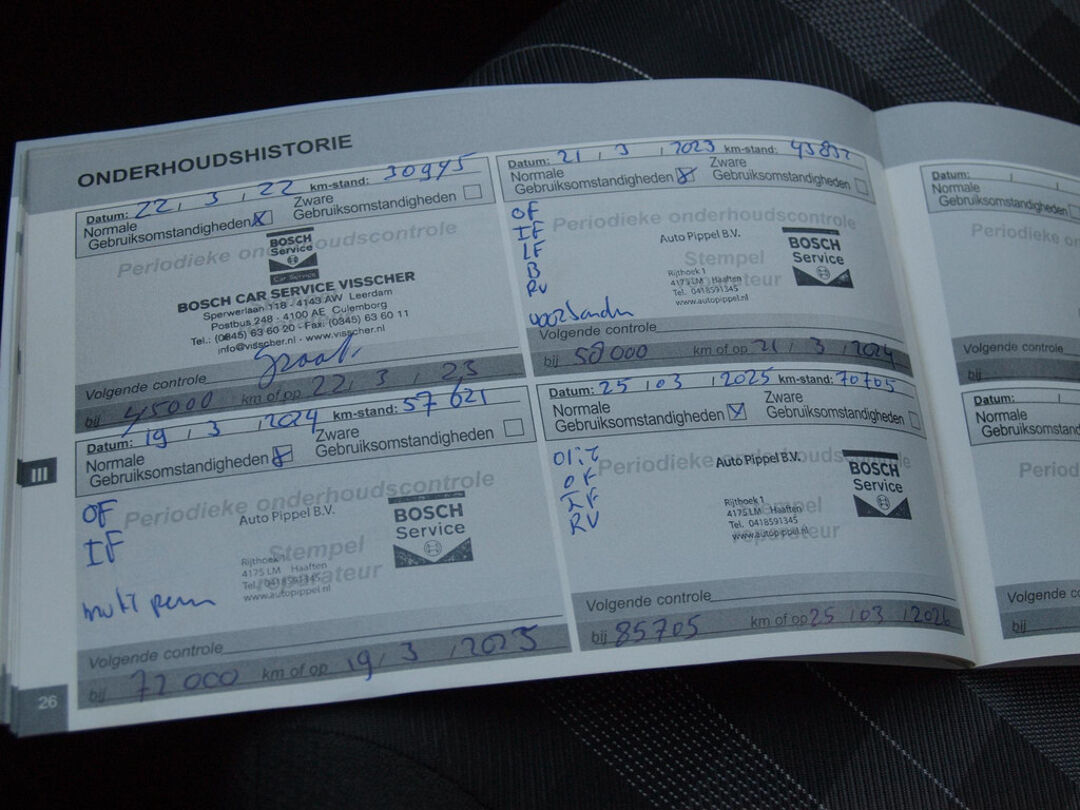 ONDERHOUDSHISTORIE
Datum: 22 / 3 / 22 km-stand: 30995
Normale Gebruiksomstandigheden X Zware Gebruiksomstandigheden
Periodieke onderhoudscontrole
BOSCH
Service
Car Service
BOSCH CAR SERVICE VISSCHER
Sperwerlaan 118 - 4143 AW Leerdam
Postbus 248 - 4100 AE Culemborg
Tel.: (0345) 63 60 20 - Fax: (0345) 63 60 11
info@visscher.nl - www.visscher.nl
Volgende controle
bij 45000 km of op 22 / 3 / 23
Datum: 21 / 3 / 2023 km-stand: 43832
Normale Gebruiksomstandigheden X Zware Gebruiksomstandigheden
Periodieke onderhoudscontrole
Stempel
reparateur
OF
IF
LF
B
RV
Auto Pippel B.V.
Rijthoek 1
4175 LM Haaften
Tel. 0418591345
www.autopippel.nl
BOSCH
Service
Volgende controle
bij 58000 km of op 21 / 3 / 2024
Datum: 19 / 3 / 2024 km-stand: 57621
Normale Gebruiksomstandigheden X Zware Gebruiksomstandigheden
Periodieke onderhoudscontrole
Stempel
reparateur
OF
IF
Auto Pippel B.V.
Rijthoek 1
4175 LM Haaften
Tel. 0418591345
www.autopippel.nl
BOSCH
Service
Volgende controle
bij 72000 km of op 19 / 3 / 2025
Datum: 25 / 03 / 2025 km-stand: 70705
Normale Gebruiksomstandigheden X Zware Gebruiksomstandigheden
Periodieke onderhoudscontrole
Stempel
reparateur
OF
IF
RV
Auto Pippel B.V.
Rijthoek 1
4175 LM Haaften
Tel. 0418591345
www.autopippel.nl
BOSCH
Service
Volgende controle
bij 85705 km of op 25 / 03 / 2026
III
26
Datum: / /
Normale
Gebruiksomstandigheden
Periodieke on
Volgende controle
bij
Datum: /
Normale
Gebruiksomstandig
Period
Volgende con
bij